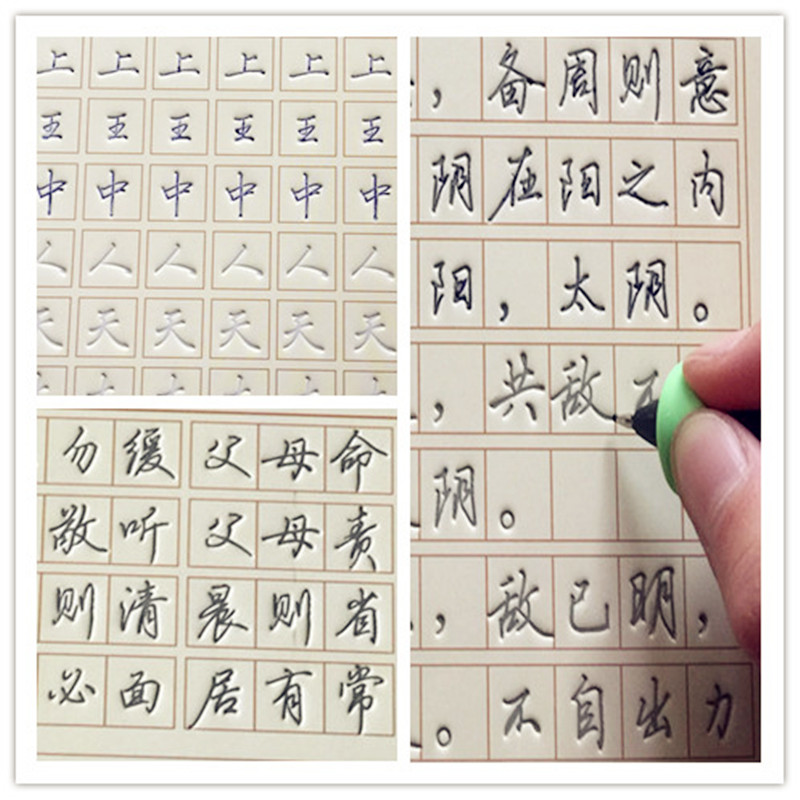 上上上上上上
王王王王王王
中中中中中中
人人人人人人
天天天天天天
勿缓 父母命
敬听 父母责
则清 晨则省
必面 居有常
，备周则意
阴在阳之内
阳，太阴。
，共敌不
阴。
，敌已明，
。不自出力